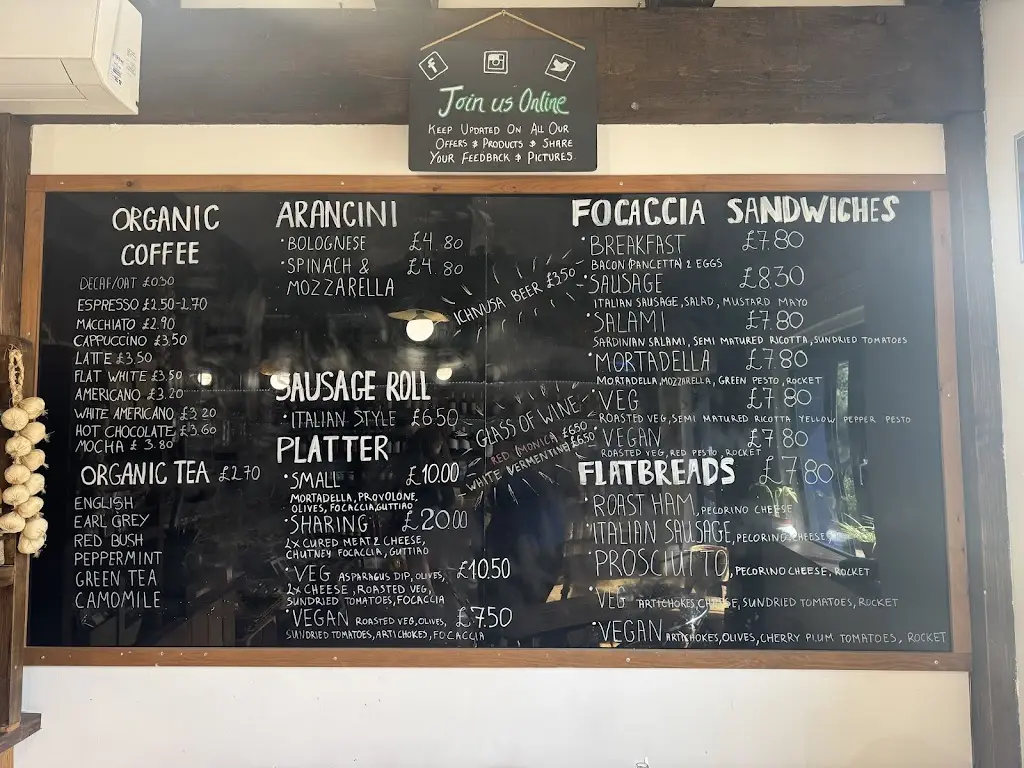 Join us Online
KEEP UPDATED ON ALL OUR
OFFERS & PRODUCTS & SHARE
YOUR FEEDBACK & PICTURES
ORGANIC
COFFEE
DECAF/OAT £0.50
ESPRESSO £2.50-2.70
MACCHIATO £2.90
CAPPUCCINO £3.50
LATTE £3.50
FLAT WHITE £3.50
AMERICANO £3.20
WHITE AMERICANO £3.20
HOT CHOCOLATE £3.60
MOCHA £3.80
ORGANIC TEA £2.70
ENGLISH
EARL GREY
RED BUSH
PEPPERMINT
GREEN TEA
CAMOMILE
ARANCINI
• BOLOGNESE £4.80
• SPINACH & £4.80
MOZZARELLA
ICHNUSA BEER £3.50
SAUSAGE ROLL
• ITALIAN STYLE £6.50
GLASS OF WINE
RED (MONICA) £6.50
WHITE (VERMENTINO) £6.50
PLATTER
• SMALL £10.00
MORTADELLA, PROVOLONE,
OLIVES, FOCACCIA, GUTTIAO
• SHARING £20.00
2X CURED MEAT 2 CHEESE,
CHUTNEY FOCACCIA, GUTTIAO
• VEG ASPARAGUS DIP, OLIVES, £10.50
2X CHEESE, ROASTED VEG,
SUNDRIED TOMATOES, FOCACCIA
• VEGAN ROASTED VEG, OLIVES, £7.50
SUNDRIED TOMATOES, ARTICHOKES, FOCACCIA
FOCACCIA SANDWICHES
• BREAKFAST £7.80
BACON (PANCETTA) 2 EGGS
• SAUSAGE £8.30
ITALIAN SAUSAGE, SALAD, MUSTARD MAYO
• SALAMI £7.80
SARDINIAN SALAMI, SEMI MATURED RICOTTA, SUNDRIED TOMATOES
• MORTADELLA £7.80
MORTADELLA, MOZZARELLA, GREEN PESTO, ROCKET
• VEG £7.80
ROASTED VEG, SEMI MATURED RICOTTA YELLOW PEPPER PESTO
• VEGAN £7.80
ROASTED VEG, RED PESTO, ROCKET
FLATBREADS £7.80
• ROAST HAM, PECORINO CHEESE
• ITALIAN SAUSAGE, PECORINO CHEESE,
• PROSCIUTTO, PECORINO CHEESE, ROCKET
• VEG ARTICHOKES, CHEESE, SUNDRIED TOMATOES, ROCKET
• VEGAN ARTICHOKES, OLIVES, CHERRY PLUM TOMATOES, ROCKET